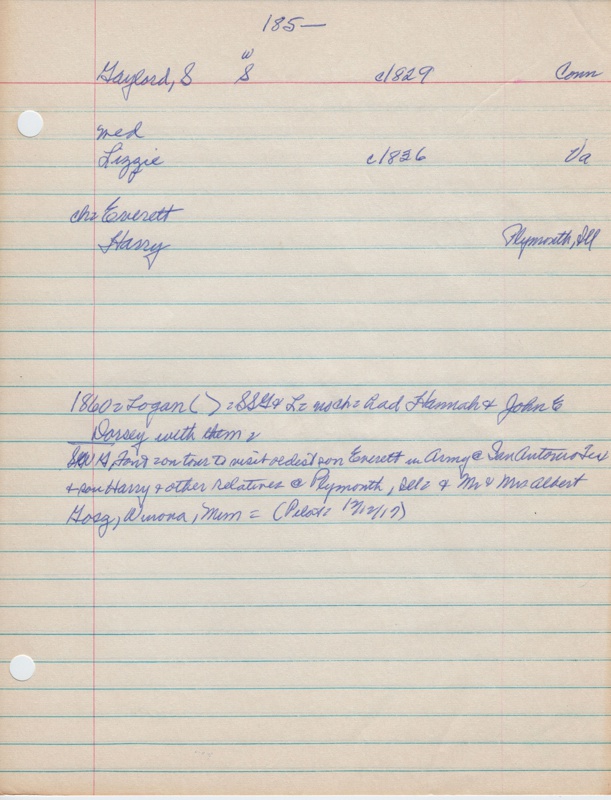 185—
Gaylord, S W S c1829 Conn
med
Lizzie c1836 Va
ch= Everett
Harry Plymouth, Ill
1860= Logan ( ) = SSG & L= no ch= had Hannah & John E
Dorsey with them=
SW G, Font on tour to visit oldest son Everett in Army @ San Antonio Tex
& son Harry & other relatives @ Plymouth, Ill= & Mr & Mrs Albert
Winona, Minn = (Pilot= 12/12/17)